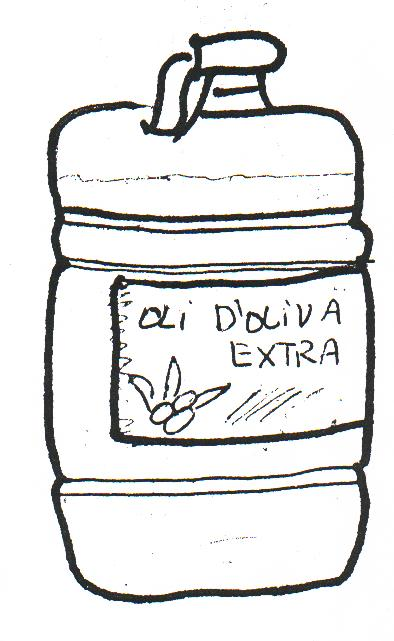 OLi D'OLiVA
EXTRA